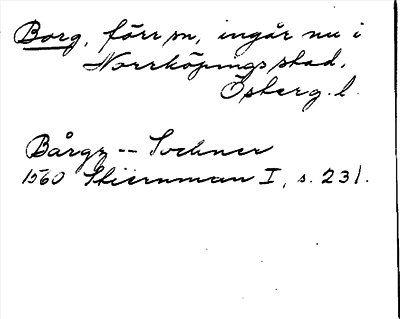 Borg, förr sn, ingår nu i
Norrköpings stad,
Östergl.
Bårgz -- Sochner
1560 Stiernman I, s. 231.